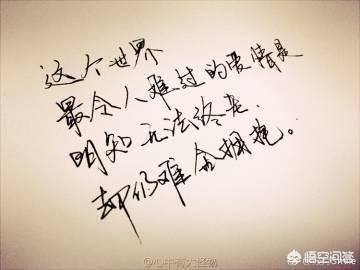 这个世界
最令人难过的爱情是
明知无法终老．
却仍难舍拥抱。
@心中有大怪物
悟空问答